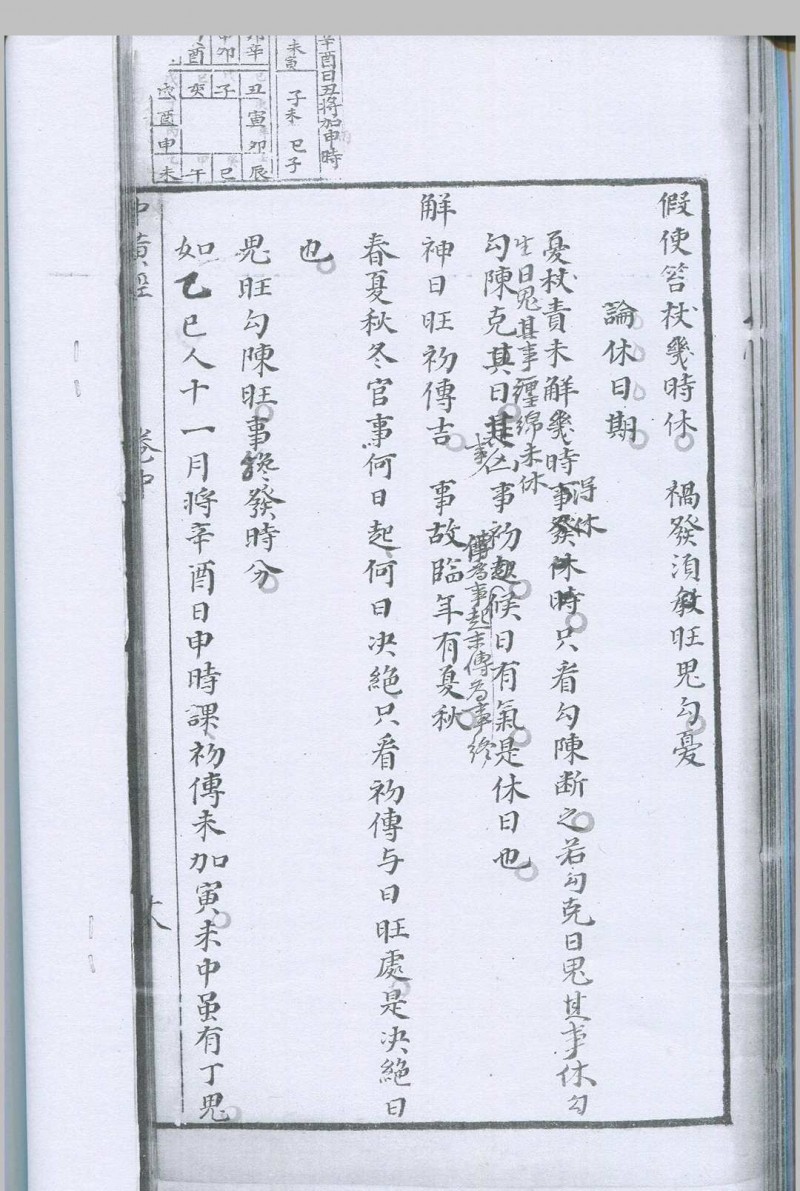 辛酉日丑將加申時
未寅 子未 巳子
丑寅卯辰
子 巳
亥 午
戌酉申未
假使笞杖幾時休 禍發須教旺鬼勾憂
論休日期
憂杖責未解幾時事發休時只看勾陳斷之若勾克日鬼其事休勾
得休
生日鬼其事纏綿未休
勾陳克其日其亽事初起候日有氣是休日也
傳為事起末傳為事終
解神日旺初傳吉 事故臨年有夏秋
春夏秋冬官事何日起何日决絕只看初傳与日旺處是决絕日
也
鬼旺勾陳旺事纔發時分
如乙巳人十一月將辛酉日申時課初傳未加寅未中虽有丁鬼
中黃經 卷中